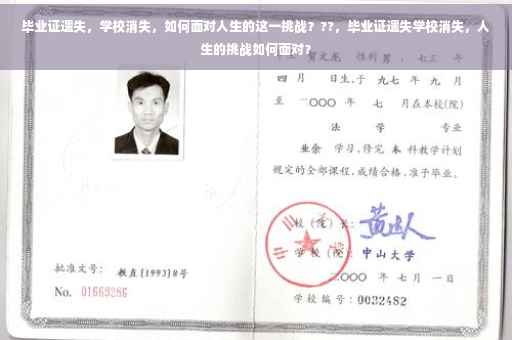 毕业证遗失，学校消失，如何面对人生的这一挑战？??，毕业证遗失学校消失，人
生的挑战如何面对？
文龙 性别 男，七三 年
四 月 日生，于 九七 年 九 月
至 二〇〇〇 年 七 月在本校(院)
法 学 专业
业余 学习，修完 本 科教学计划
规定的全部课程，成绩合格，准予毕业。
校 (院) 长：
学校 (院)： 中山大学
二〇〇〇 年 七 月 一 日
学校编号：0032482
批准文号： 教直[1993]8号
No. 01669286